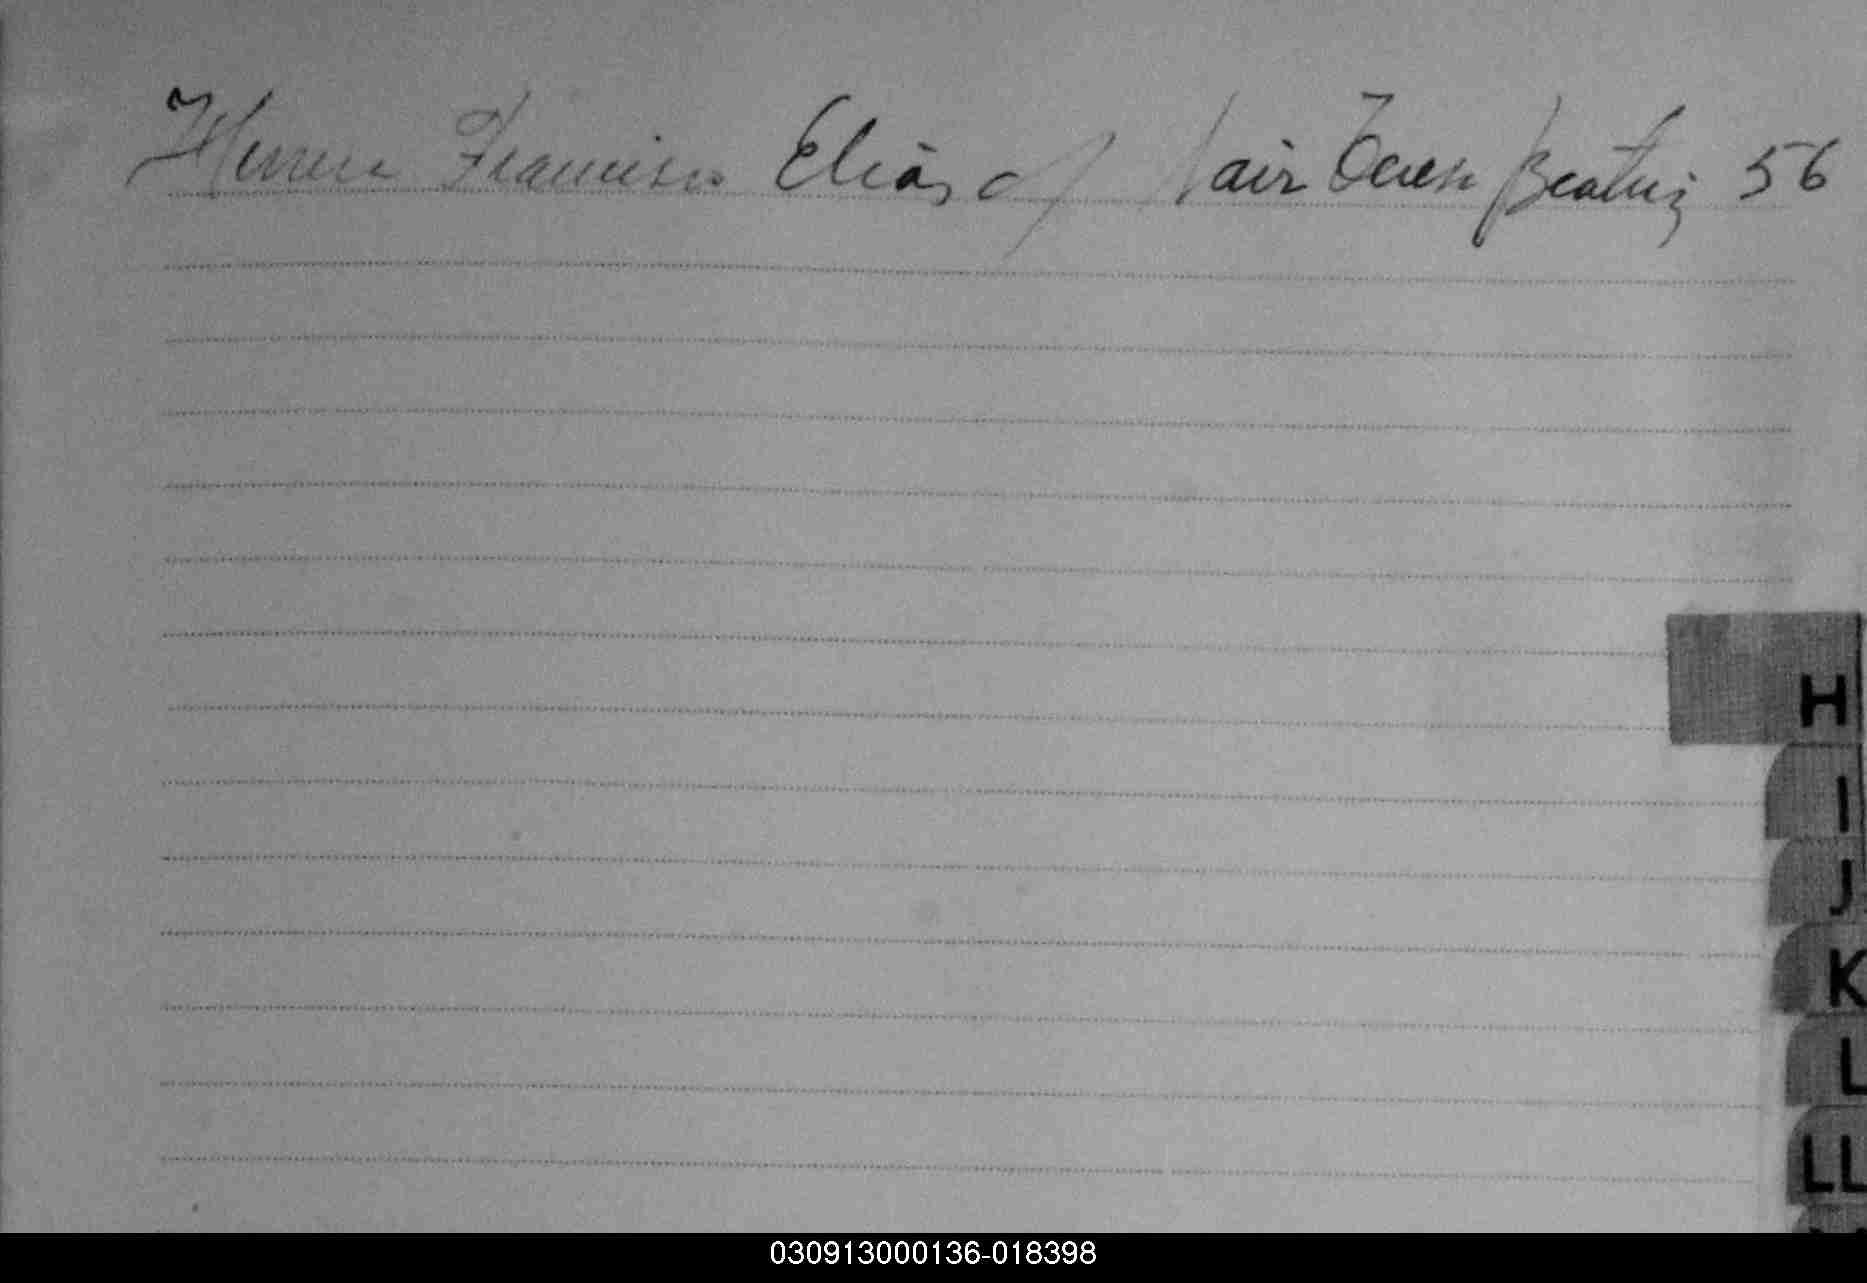 Herrera Francisco Elías c/ Nair Teresa Beatriz 56
H
I
J
K
L
LL
030913000136-018398